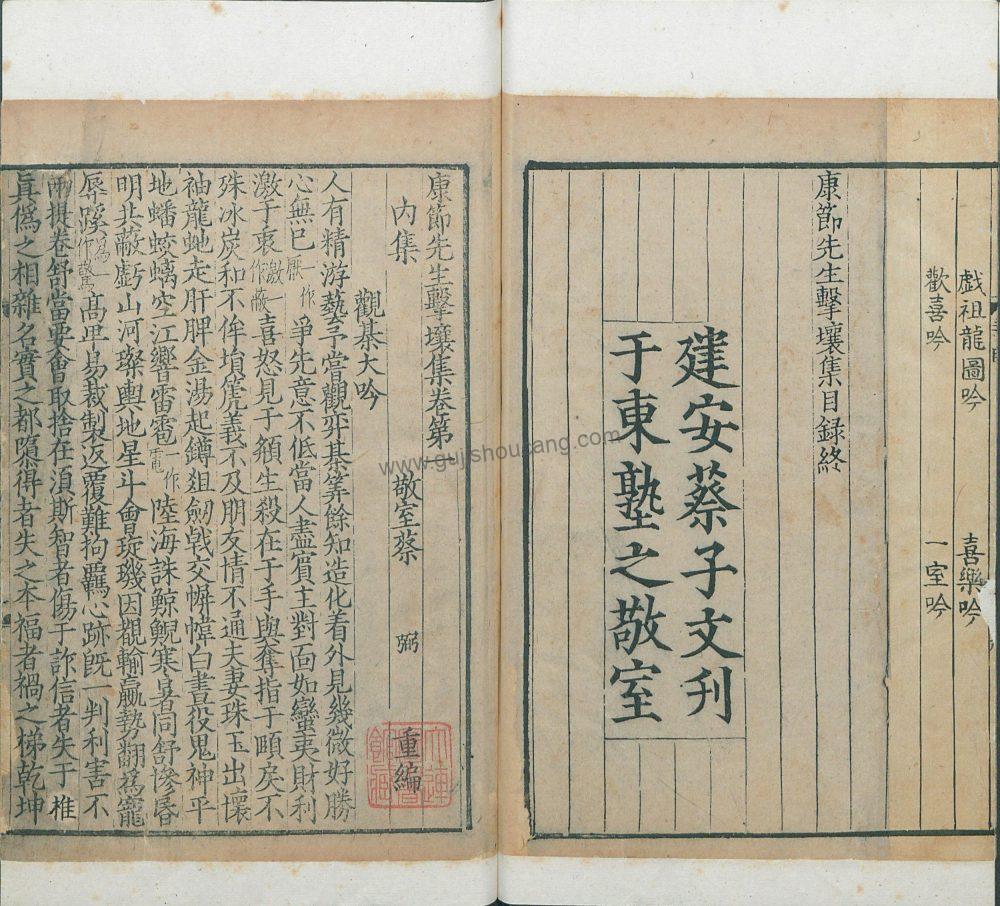 戲祖龍圖吟　喜樂吟
歡喜吟　一室吟
康節先生擊壤集目録終
建安蔡子文刋
于東塾之敬室
康節先生擊壤集卷第
内集　敬室蔡　弼　重編
觀棊大吟
人有精游藝予嘗觀弈棊筭餘知造化着外見幾微好勝
心無已一作厭爭先意不低當人盡賓主對面如蠻夷財利
激于衷激一作蔽喜怒見于頯生殺在于手與奪指于頤戾不
殊冰炭和不侔塤箎義不及朋友情不通夫妻珠玉出壞
袖龍虵走肝脾金湯起鐏爼劒戟交幈幃白晝役鬼神平
地蟠蛟螭空江響雷雹一作電陸海誅鯨鯢寒暑同舒慘昏
明共蔽虧山河璨輿地星斗會璇璣因覩輸贏勢翻爲寵
辱蹊高卑易裁製返覆難拘羈心跡旣一判利害不
兩提卷舒當要會取捨在湏斯智者傷于詐信者失于椎
真僞之相雜名實之都隳得者失之本福者禍之梯乾坤
www.gujishoucang.com